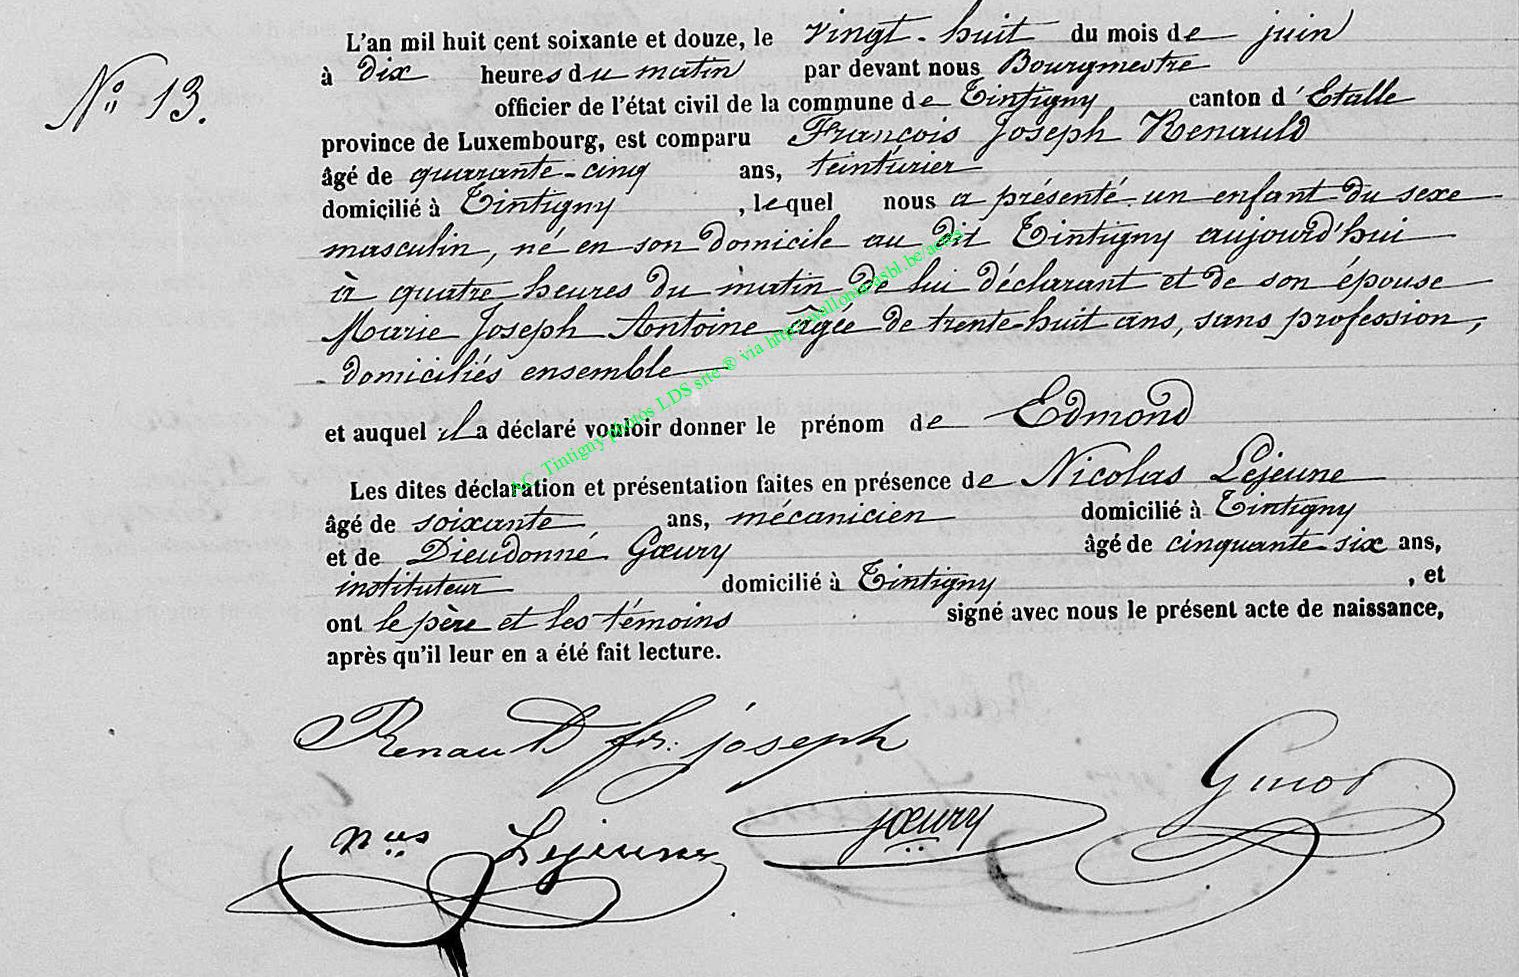 L'an mil huit cent soixante et douze, le vingt-huit du mois de juin
N° 13.
à dix heures du matin par devant nous Bourgmestre
officier de l'état civil de la commune de Tintigny canton d'Etalle
province de Luxembourg, est comparu François Joseph Renauld
âgé de quarante-cinq ans, teinturier
domicilié à Tintigny, lequel nous a présenté un enfant du sexe
masculin, né en son domicile au dit Tintigny aujourd'hui
à quatre heures du matin de lui déclarant et de son épouse
Marie Joseph Antoine âgée de trente-huit ans, sans profession,
domiciliés ensemble
et auquel il a déclaré vouloir donner le prénom de Edmond
Les dites déclaration et présentation faites en présence de Nicolas Lejeune
âgé de soixante ans, mécanicien domicilié à Tintigny
et de Dieudonné Gœury âgé de cinquante-six ans,
instituteur domicilié à Tintigny, et
ont le père et les témoins signé avec nous le présent acte de naissance,
après qu'il leur en a été fait lecture.
Renauld fr. joseph
Nas Lejeune
gœury
AC Tintigny photos LDS site ® via http://wallonia-asbl.be/actes